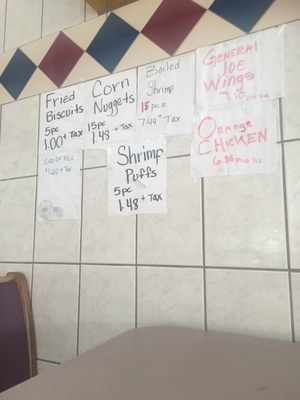 Fried
Biscuits
5pc
1.00 + Tax
Cup of Rice
$1.00 + Tax
Corn
Nuggets
15pc
1.48 + Tax
Boiled
Shrimp
15 pcs
7.49 + Tax
General
Joe
Wings
Orange
Chicken
Shrimp
Puffs
5pc
1.48 + Tax